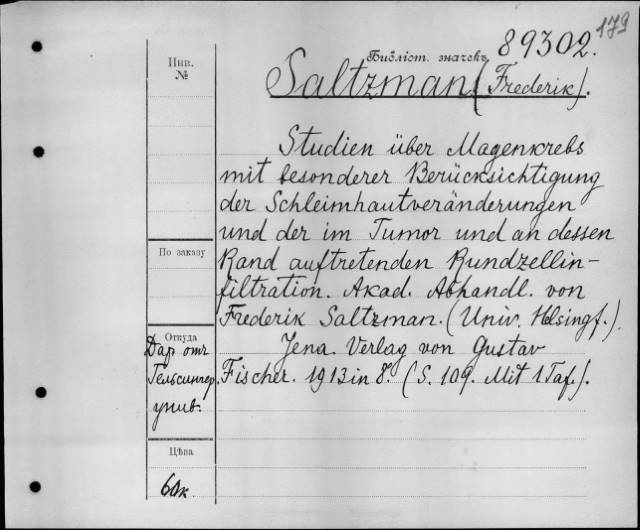 179
89302.
Инв.
№
Библіот. значекъ
Saltzman (Frederik).
Studien über Magenkrebs
mit besonderer Berücksichtigung
der Schleimhautveränderungen
und der im Tumor und an dessen
По заказу
Rand auftretenden Rundzellin-
filtration. Akad. Abhandl. von
Frederik Saltzman. (Univ. Helsingf.).
Откуда
Даръ отъ
Гельсингфор.
унив.
Jena. Verlag von Gustav
Fischer. 1913 in 8°. (S. 109. Mit 1 Taf.).
Цѣна
60к